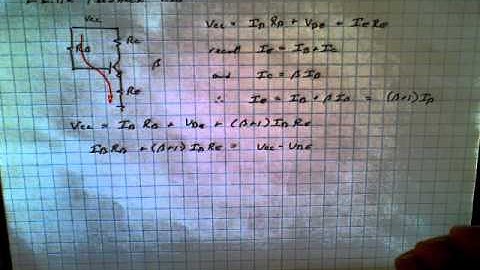 Vcc
Vcc = IB RB + VBE + IE RE
RB
RC
recall IE = IB + IC
β
and IC = β IB
RE
∴ IE = IB + β IB = (β+1) IB
Vcc = IB RB + VBE + (β+1) IB RE
IB RB + (β+1) IB RE = Vcc - VBE